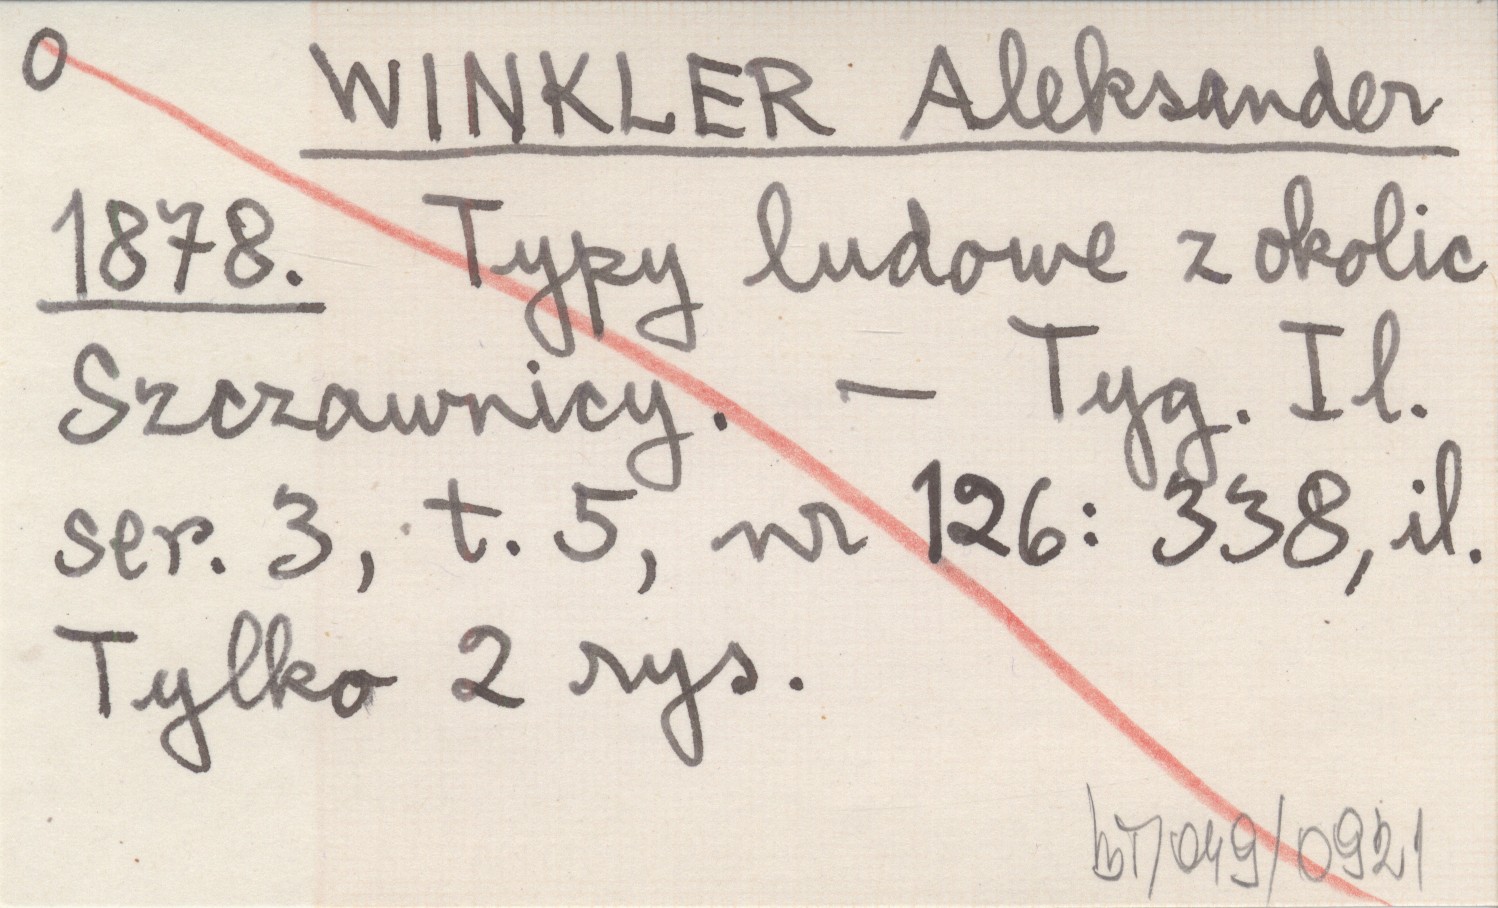 O WINKLER Aleksander
1878. Typy ludowe z okolic
Szczawnicy. — Tyg. Il.
ser. 3, t. 5, nr 126: 338, il.
Tylko 2 rys.
bT/049/0921